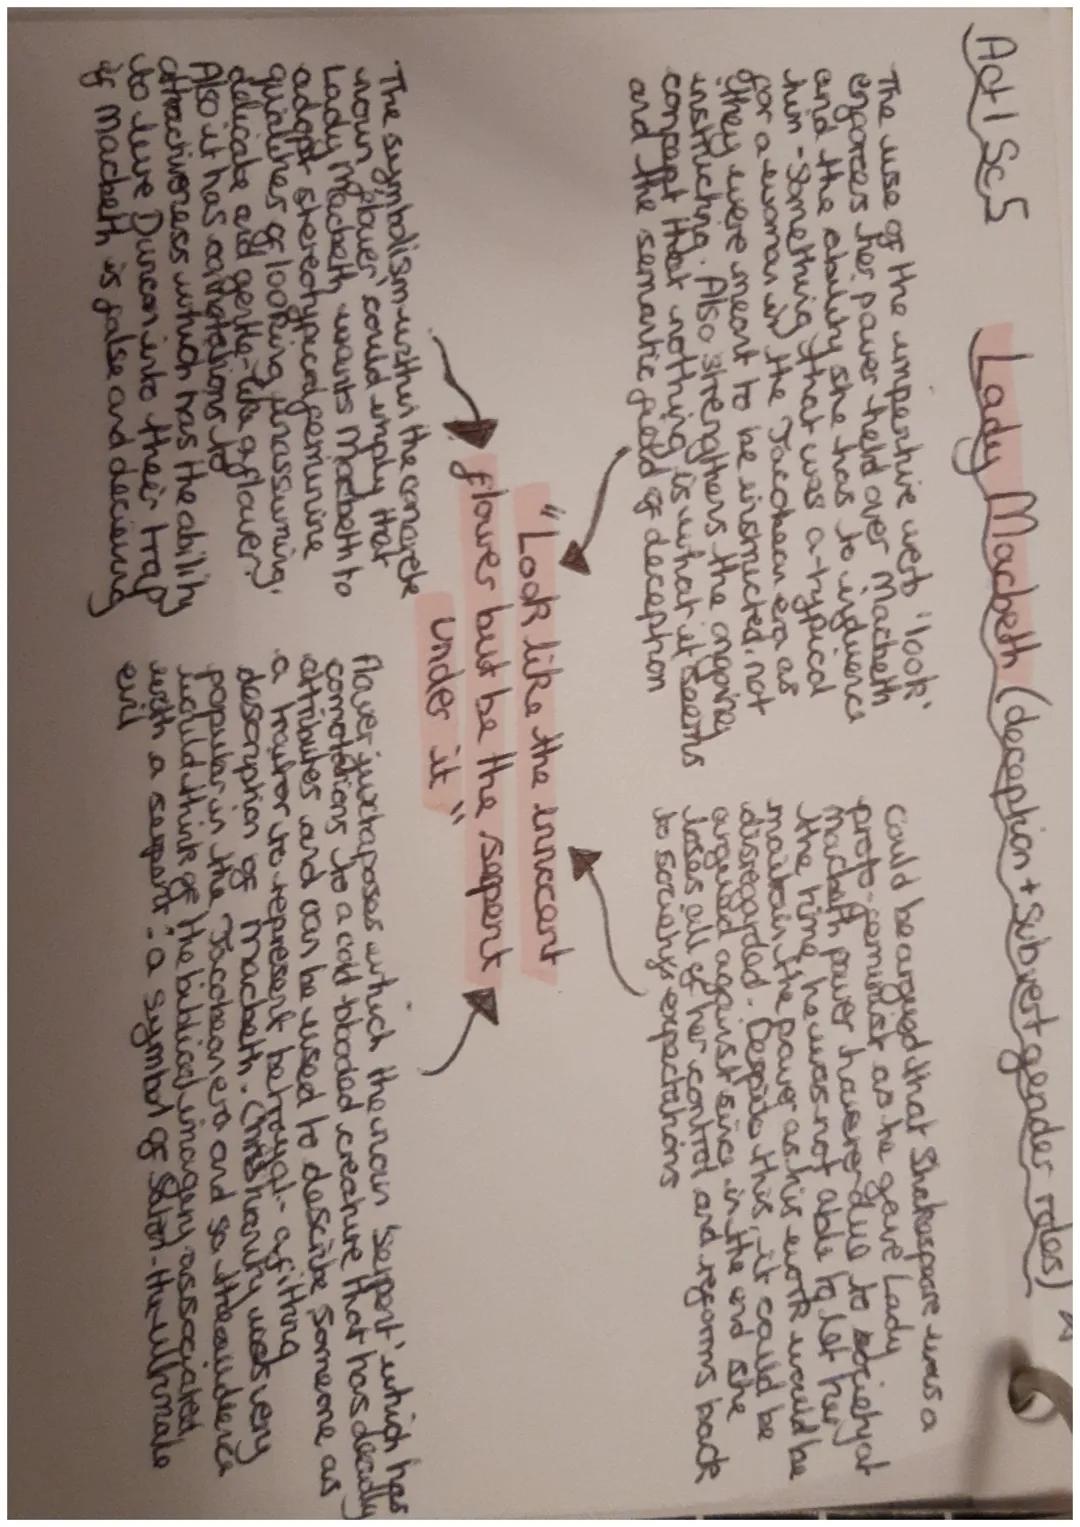 Act 1 Sc 5 Lady Macbeth (deception + subvert gender roles)
The use of the imperitive verb 'look'
enforces her power held over Macbeth
and the ability she has to influence
him - Something that was a-typical
for a woman in the Jacobean era as
they were meant to be instructed, not
instructing. Also strengthens the ongoing
concept that nothing is what it seems
and the semantic field of deception
Could be argued that Shakespeare was a
proto-feminist as he gave Lady
Macbeth power however due to society at
the time he was not able to let her
maintain the power as his work would be
disregarded. Despite this, it could be
argued against since in the end she
loses all of her control and reforms back
to societys expectations
"Look like the innocent
flower but be the serpent
under it"
The symbolism within the concrete
noun 'flower' could imply that
Lady Macbeth wants Macbeth to
adopt stereotypical feminine
qualities of looking unassuming,
delicate and gentle - like a flower.
Also it has connotations to
attractiveness which has the ability
to lure Duncan into their trap
as Macbeth is false and decieving
flower juxtaposes which the noun 'serpent' which has
connotations to a cold-blooded creature that has deadly
attributes and can be used to describe someone as
a traitor to represent betrayal - a fitting
description of Macbeth. Christianity was very
popular in the Jacobean era and so the audience
would think of the biblical imagery associated
with a serpent - a symbol of Satan - the ultimate
evil